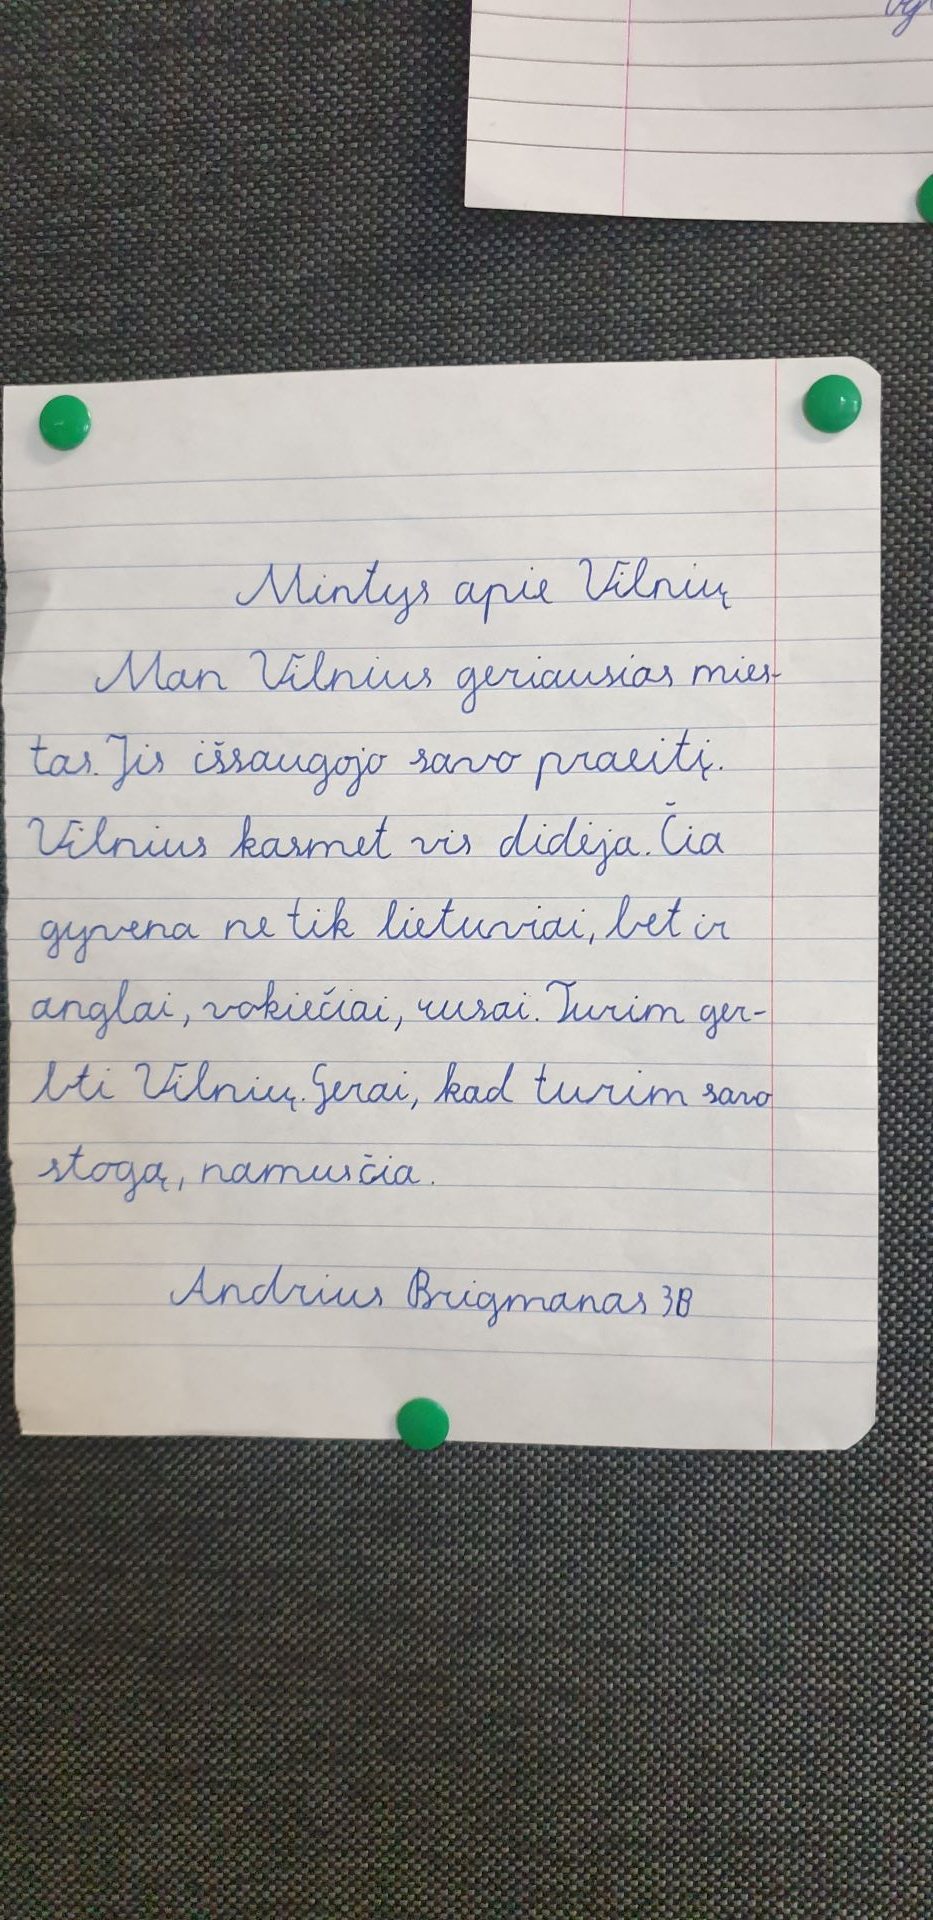 Mintys apie Vilnių
Man Vilnius geriausias mies-
tas. Jis išsaugojo savo praeitį.
Vilnius kasmet vis didėja. Čia
gyvena ne tik lietuviai, bet ir
anglai, vokiečiai, rusai. Turim ger-
bti Vilnių. Gerai, kad turim savo
stogą, namus čia.
Andrius Brigmanas 3B